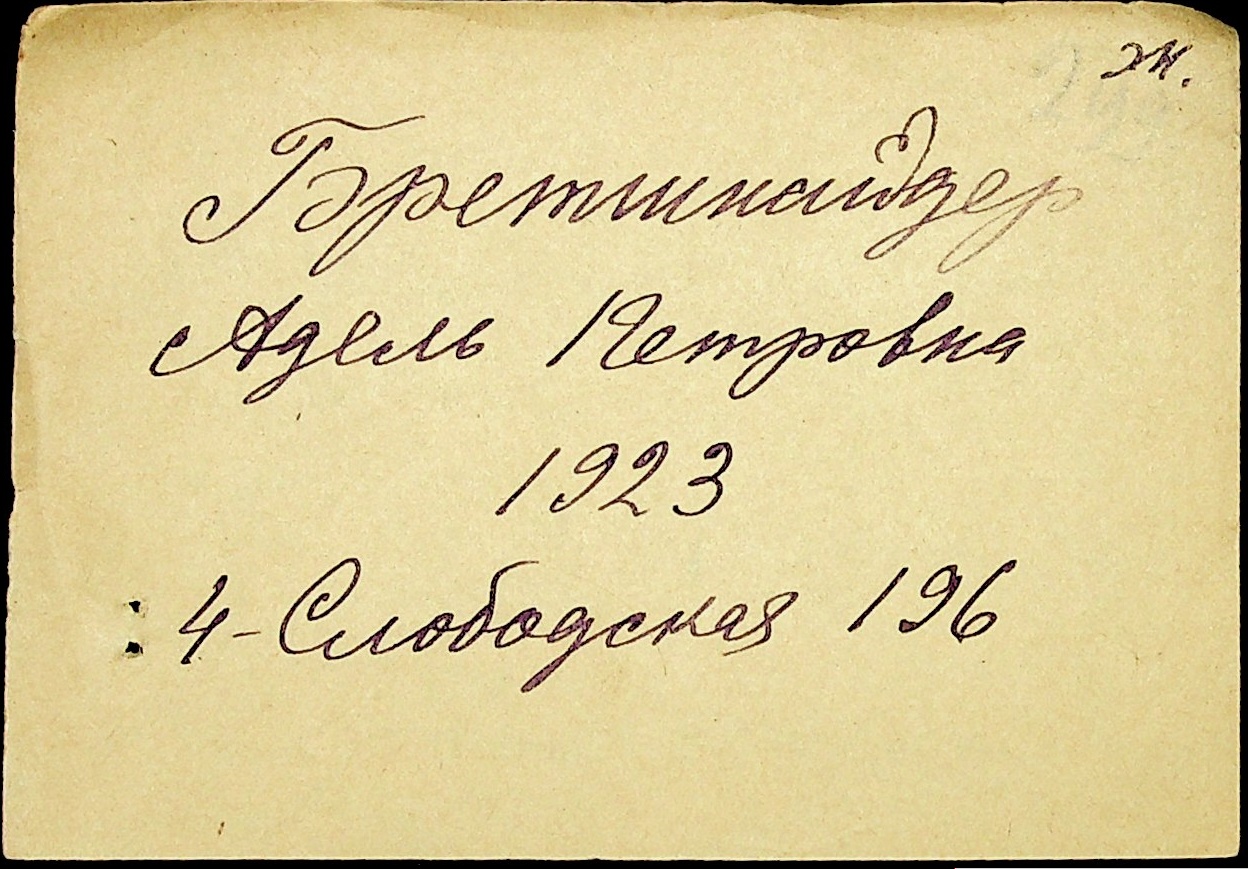 ж.
Бретшнайдер
Адель Петровна
1923
4-Слободская 196